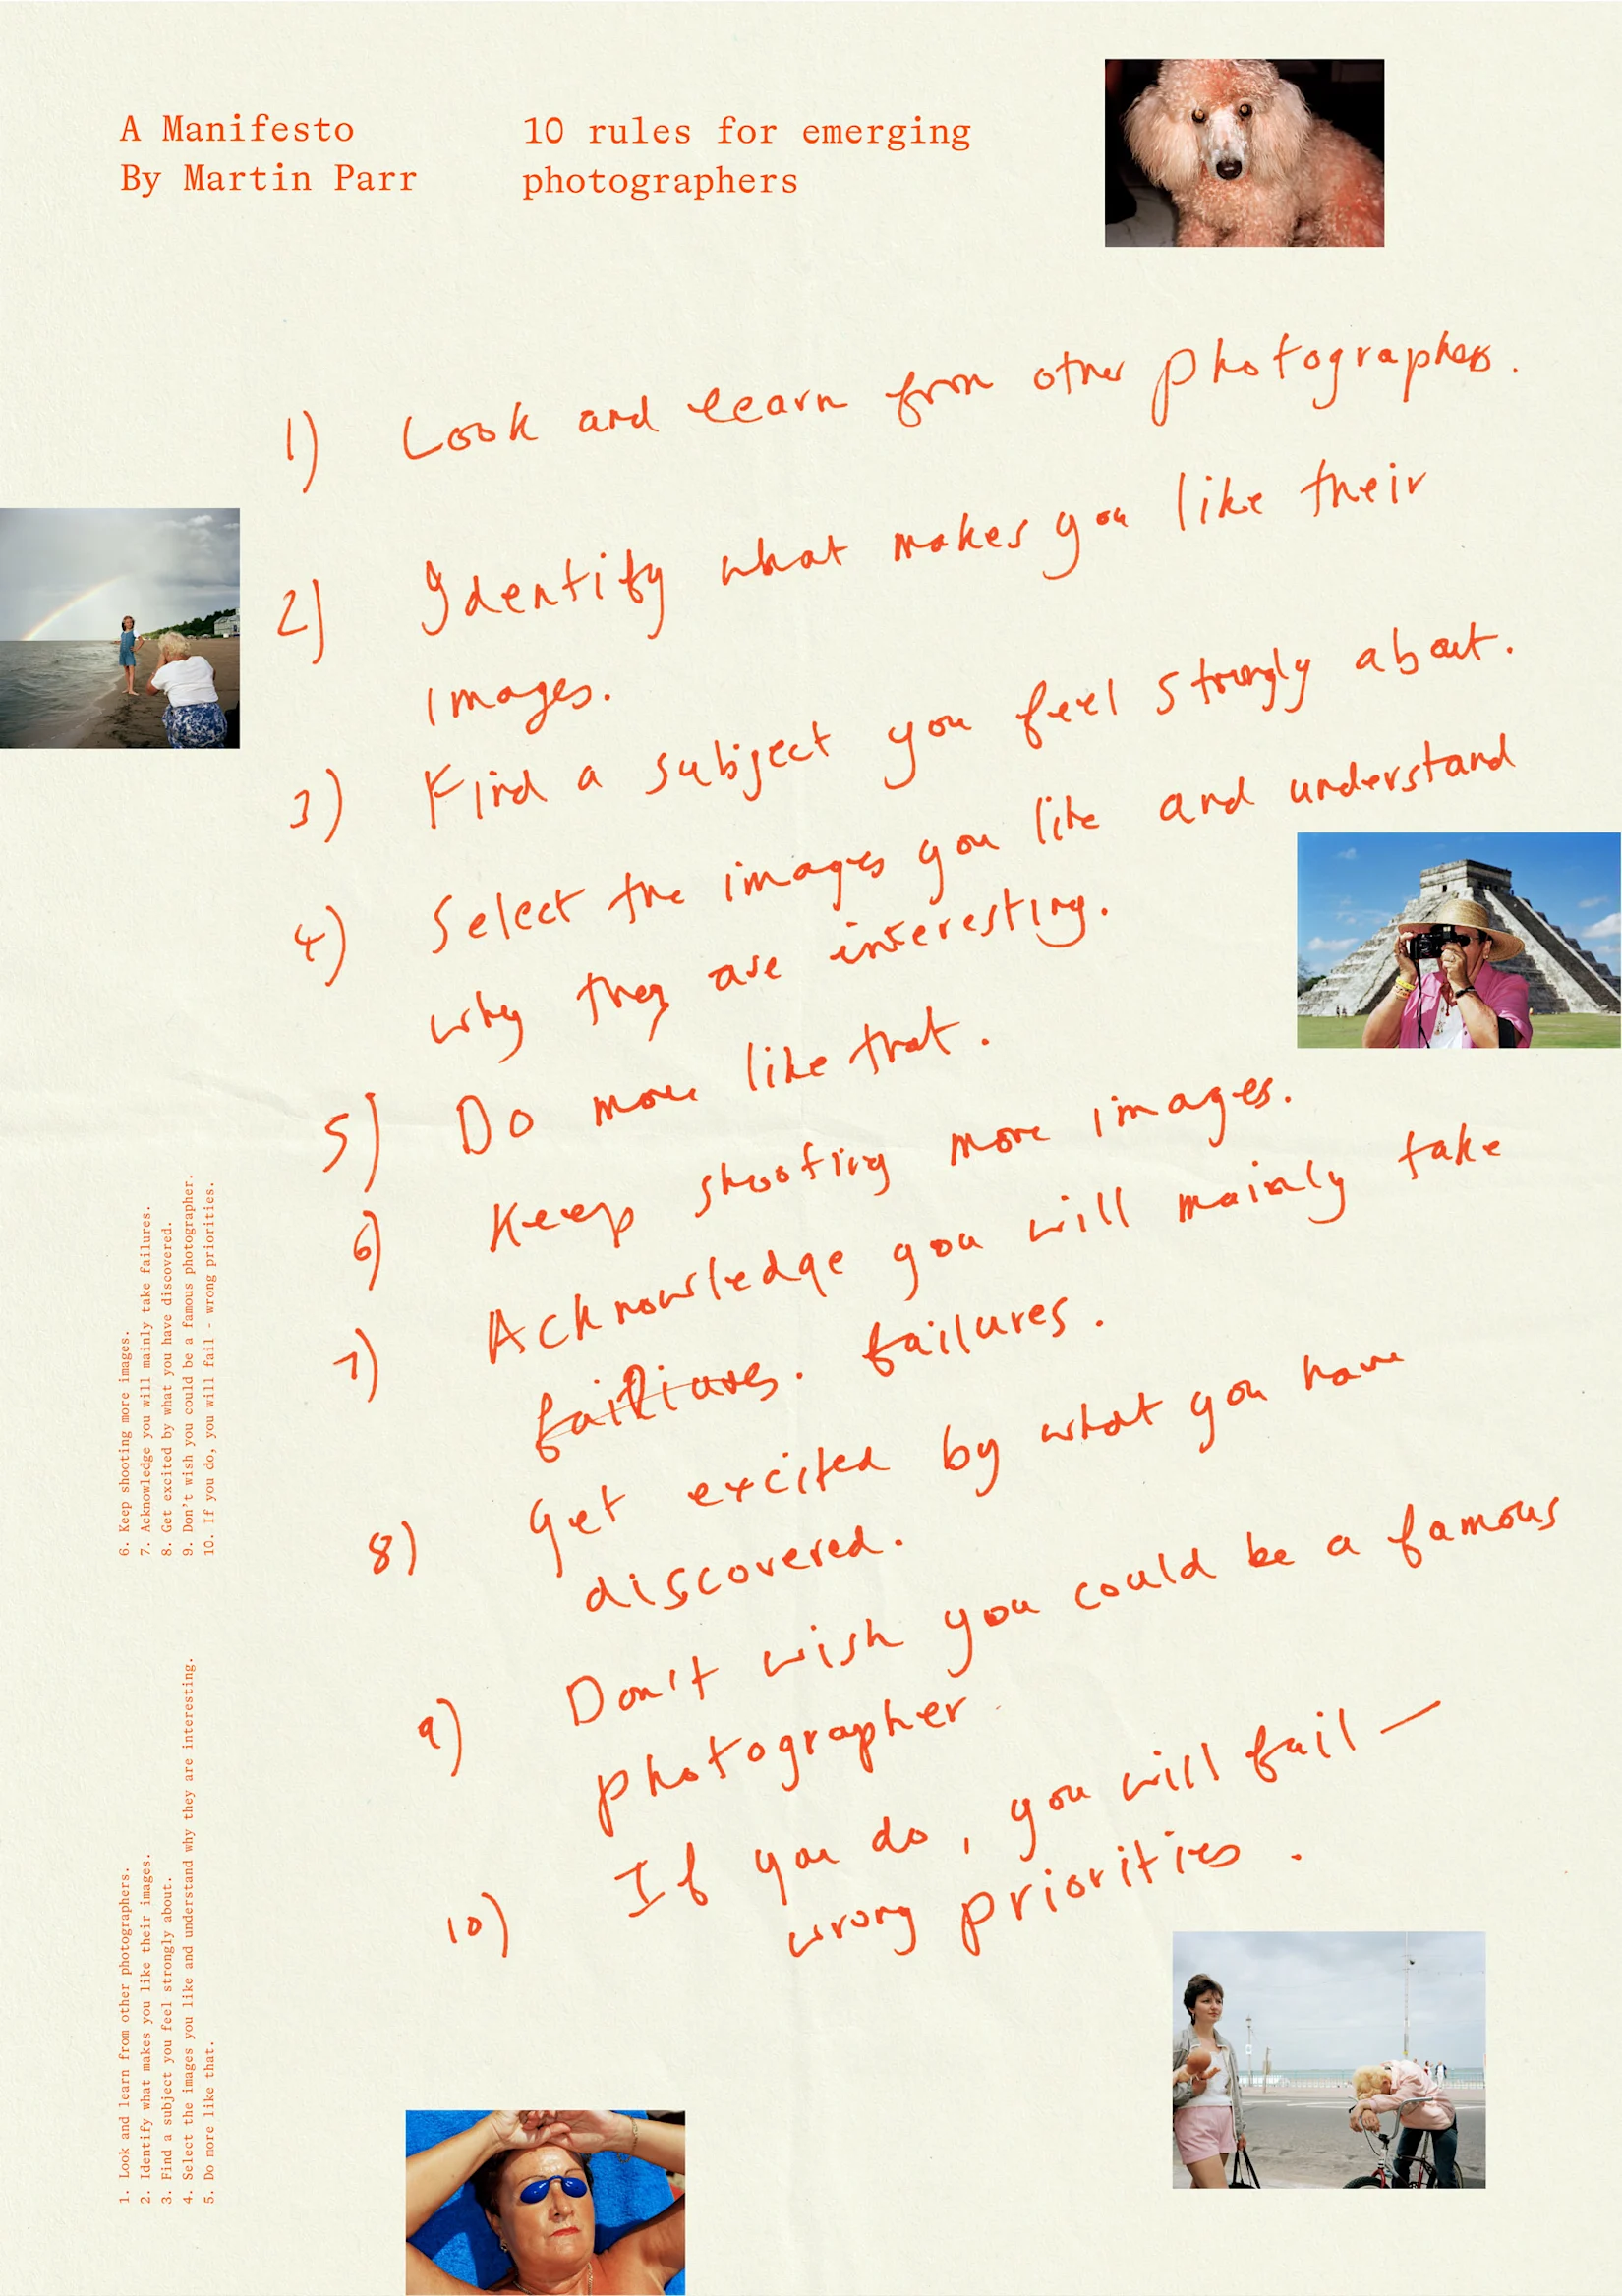 A Manifesto
By Martin Parr
10 rules for emerging
photographers
1) Look and learn from other photographers.
2) Identify what makes you like their
images.
3) Find a subject you feel strongly about.
4) Select the images you like and understand
why they are interesting.
5) Do more like that.
6) Keep shooting more images.
7) Acknowledge you will mainly take
failures.
8) Get excited by what you have
discovered.
9) Don't wish you could be a famous
photographer
10) If you do, you will fail —
wrong priorities.
1. Look and learn from other photographers.
2. Identify what makes you like their images.
3. Find a subject you feel strongly about.
4. Select the images you like and understand why they are interesting.
5. Do more like that.
6. Keep shooting more images.
7. Acknowledge you will mainly take failures.
8. Get excited by what you have discovered.
9. Don't wish you could be a famous photographer.
10. If you do, you will fail - wrong priorities.